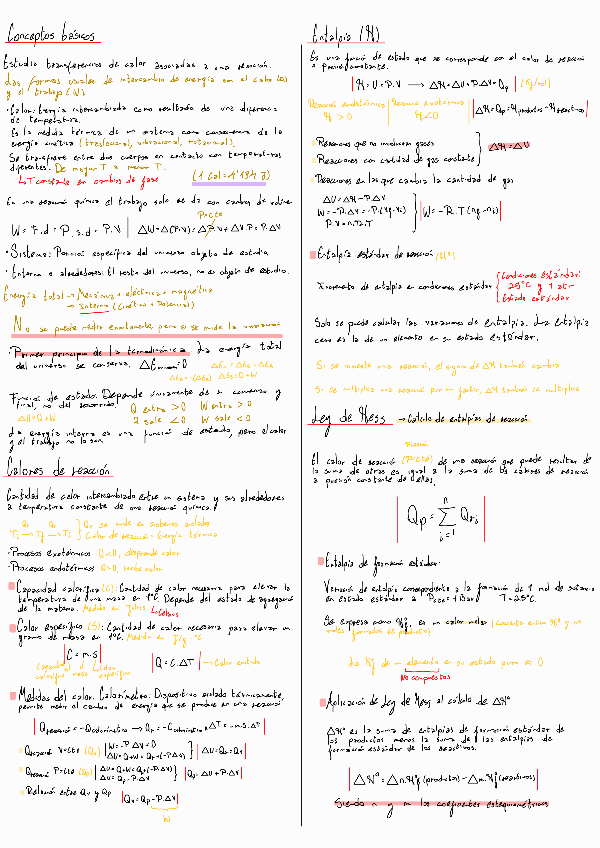 Conceptos básicos
Estudia transferencias de calor asociadas a una reacción.
Las formas usuales de intercambio de energía son el calor (Q)
y el trabajo (W).
· Calor: Energía intercambiada como resultado de una diferencia
de temperatura.
Es la medida térmica de un sistema como consecuencia de la
energía cinética (traslacional, vibracional, rotacional).
Se transfiere entre dos cuerpos en contacto con temperaturas
diferentes. De mayor T a menor T.
↳ T constante en cambios de fase
(1 cal = 4'184 J)
En una reacción química el trabajo solo se da con cambios de volumen
P=cte
W = F·d = P·s·d = P·V | ΔW = Δ(P·V) = ΔP·V + ΔV·P = P·ΔV
· Sistema: Porción específica del universo objeto de estudio
· Entorno o alrededores: El resto del universo, no es objeto de estudio.
Energía total → Mecánica + eléctrica + magnética
→ Interna (Cinética + Potencial)
No se puede medir exactamente, pero sí se mide la variación
· Primer principio de la termodinámica: La energía total
del universo se conserva. ΔE universo = 0
Función de estado. Depende únicamente de su comienzo y
final, no del recorrido.
ΔU = Q + W
Q entra > 0 W entra > 0
Q sale < 0 W sale < 0
La energía interna es una función de estado, pero el calor
y el trabajo no lo son.
Calores de reacción
Cantidad de calor intercambiado entre un sistema y sus alrededores
a temperatura constante de una reacción química.
Qr se mide en sistemas aislados
Calor de reacción = Energía térmica
· Procesos exotérmicos Q<0, desprende calor
· Procesos endotérmicos Q>0, recibe calor
· Capacidad calorífica (C): Cantidad de calor necesaria para elevar la
temperatura de una masa en 1ºC. Depende del estado de agregación
de la materia. Medida en Julios
· Calor específico (S): Cantidad de calor necesaria para elevar un
gramo de masa en 1ºC. Medida en J/g·ºC
|C = m·S|
Capacidad calorífica masa Calor específico
|Q = C·ΔT| → Calor emitido
· Medidas del calor. Calorímetro: Dispositivo aislado térmicamente,
permite medir el cambio de energía que se produce en una reacción
|Q reacción = -Q calorímetro → Qr = -C calorímetro × ΔT = -m·S·ΔT|
· Q reacción V=cte (Qv) | W = -P·ΔV = 0
ΔU = Q + W = Qv + (-P·ΔV) | ΔU = Qv = Qr |
· Q reacción P=cte (Qp) | ΔU = Q + W = Qp + (-P·ΔV)
ΔU = Qp - P·ΔV | Qp = ΔU + P·ΔV |
· Relación entre Qv y Qp |Qv = Qp - P·ΔV|
W
Entalpía (H)
Es una función de estado que se corresponde con el calor de reacción
a presión constante.
|H = U + P·V → ΔH = ΔU + P·ΔV = Qp| (KJ/mol)
Reacción endotérmica | Reacción exotérmica | ΔH = Qp = H productos - H reactivos |
H > 0 H < 0
· Reacciones que no involucran gases
· Reacciones con cantidad de gas constante } ΔH = ΔU
· Reacciones en las que cambia la cantidad de gas
ΔU = ΔH - P·ΔV
W = -P·ΔV = -P·(Vf - Vi)
P·V = n·R·T
| W = -R·T (nf - ni) |
· Entalpía estándar de reacción (Hº)
Incremento de entalpía en condiciones estándar { Condiciones estándar:
25ºC y 1 atm
Estado estándar
Solo se puede calcular las variaciones de entalpía. La entalpía
cero es la de un elemento en su estado estándar.
Si se invierte una reacción, el signo de ΔH también cambia
Si se multiplica una reacción por un factor, ΔH también se multiplica
Ley de Hess → Cálculo de entalpías de reacción
Presión
El calor de reacción (P=cte) de una reacción que puede resultar de
la suma de otras es igual a la suma de los calores de reacción
a presión constante de ellas.
| Qp = Σ Qri |
n
i=1
· Entalpía de formación estándar:
Variación de entalpía correspondiente a la formación de 1 mol de sustancia
en estado estándar a P=cte=1 bar T=25ºC.
Se expresa como Hºf, es un calor molar
La Hf de un elemento en su estado puro es 0
No compuestos
· Aplicación de Ley de Hess al cálculo de ΔHº
ΔHº es la suma de entalpías de formación estándar de
los productos menos la suma de las entalpías de
formación estándar de los reactivos.
|ΔHº = Δn·Hºf (productos) - Δm·Hºf (reactivos)|
Siendo n y m los coeficientes estequiométricos